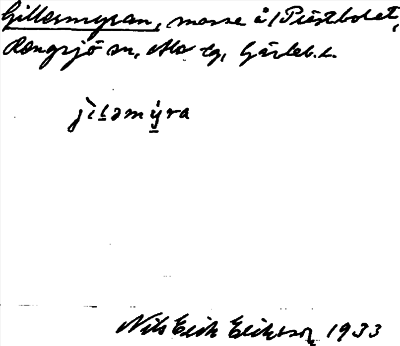 Gillermyran, mosse å Prästbolet,
Rengsjö sn, Ala hg, Gävleb. l.
jìləmýra
Nils Erik Eriksson 1933